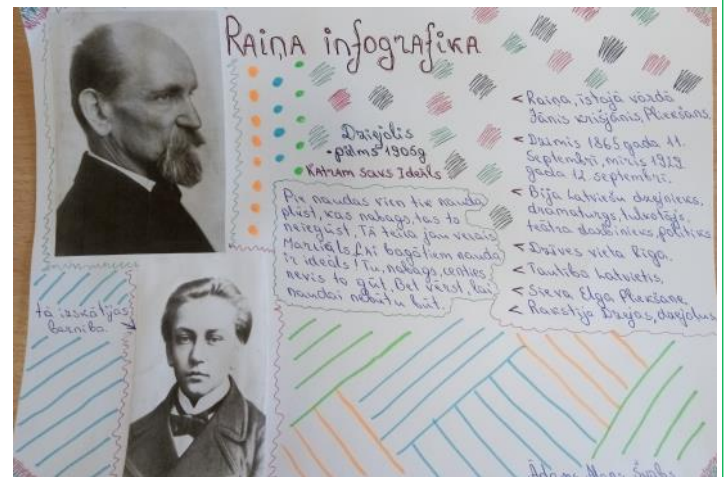 Raiņa infografika
Dzejolis
- pirms 1905g
Katram savs Ideāls
Pie naudas vien tik nauda
plūst, kas nabags, tas to
neiegūst. Tā teica jau vecais
Marciāls. Lki bagātiem nauda
ir ideāls! Tu, nabags, centies
nevis to gūt. Bet vērst, lai
naudai nebūtu būt.
< Raiņa, īstajā vārdā
Jānis Krišjānis Pliekšāns.
< Dzimis 1865 gada 11.
Septembrī, miris 1929
gada 12 septembrī.
< Bija Latviešu dzejnieks,
dramaturgs, tulkotājs,
teātra darbinieks, politiķis
< Dzīves vieta Rīga.
< Tautība Latvietis.
< Sieva Elga Pliekšāne.
< Rakstīja Dzejas, dzejoļus
tā izskatījās
bērnība.